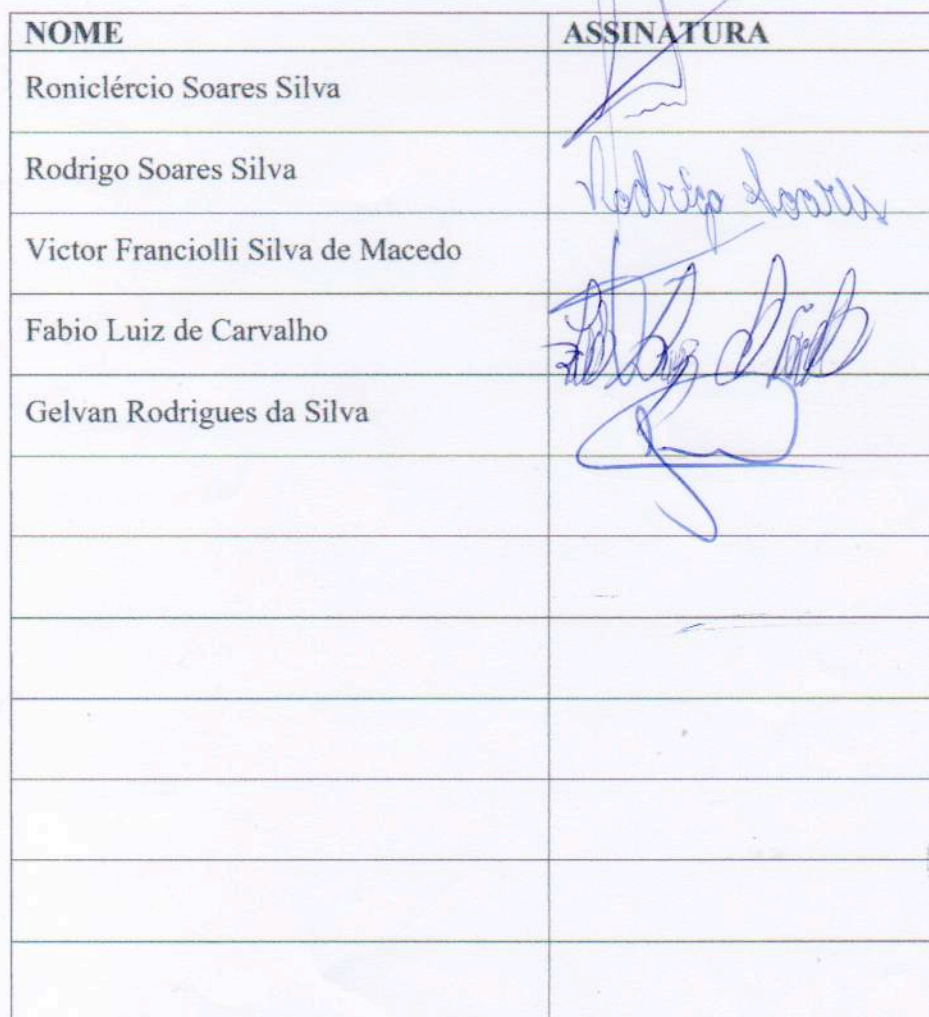 NOME ASSINATURA
Roniclércio Soares Silva
Rodrigo Soares Silva Rodrigo Soares
Victor Franciolli Silva de Macedo
Fabio Luiz de Carvalho
Gelvan Rodrigues da Silva